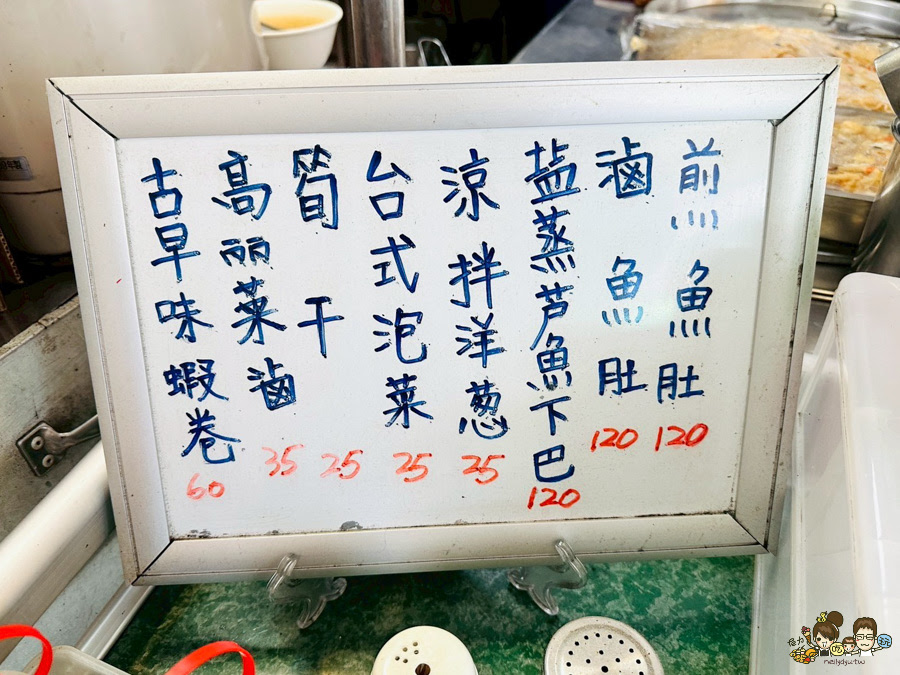 煎魚肚 120
滷魚肚 120
盐蒸芦魚下巴 120
涼拌洋葱 25
台式泡菜 25
筍干 25
高丽菜滷 35
古早味蝦卷 60
neilyдy.tw